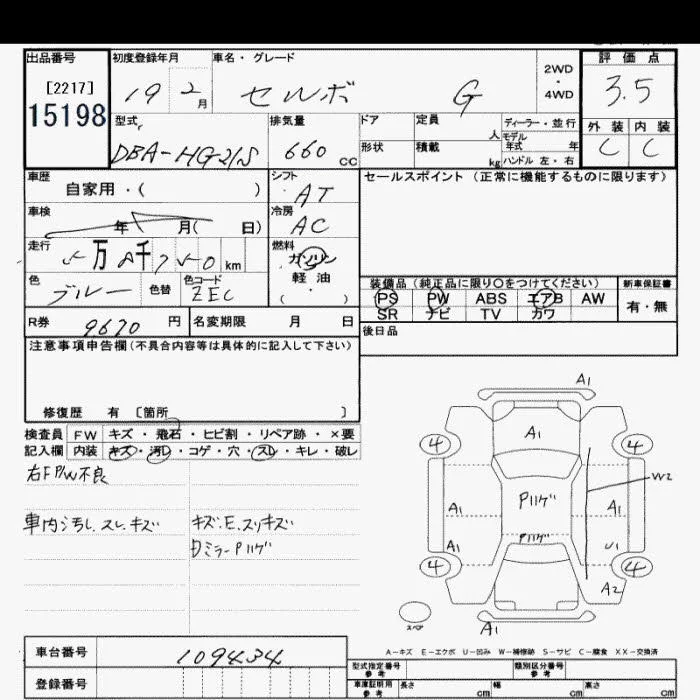 出品番号 初度登録年月 車名・グレード 2WD ・ 4WD 評価点
[2217] 15198 19 2月 セルボ G 3.5
型式 DBA-HG21S 排気量 660 CC ドア 定員 人 ディーラー・並行 外装 内装
形状 積載 kg モデル年式 年 ハンドル 左・右 C C
車歴 自家用・( ) シフト AT セールスポイント(正常に機能するものに限ります)
車検 年 月( 日) 冷房 AC
走行 5万8千750km 燃料 ガソリン 軽油 ( ・ )
色 ブルー 色替 色コード ZEC
装備品(純正品に限り〇をつけてください) 新車保証書
PS PW ABS エアB AW 有・無
SR ナビ TV カワ
R券 9670円 名変期限 月 日 後日品
注意事項申告欄(不具合内容等は具体的に記入して下さい)
修復歴 有 [箇所 ]
検査員 FW キズ・飛石・ヒビ割・リペア跡・×要
記入欄 内装 キズ・汚レ・コゲ・穴・スレ・キレ・破レ
右F P/W不良
車内汚レ.スレ.キズ キズ.E.スリキズ
Pハゲ
A1
A1
4 4
W2
Pハゲ
A1 A1
Pハゲ
A1 U1
4 4
A2
スペア
A1
A-キズ E-エクボ U-凹み W-補修跡 S-サビ C-腐食 XX-交換済
車台番号 109434
登録番号
型式指定番号 参考 類別区分番号 参考
車庫証明用 参考 長さ cm 幅 cm 高さ cm